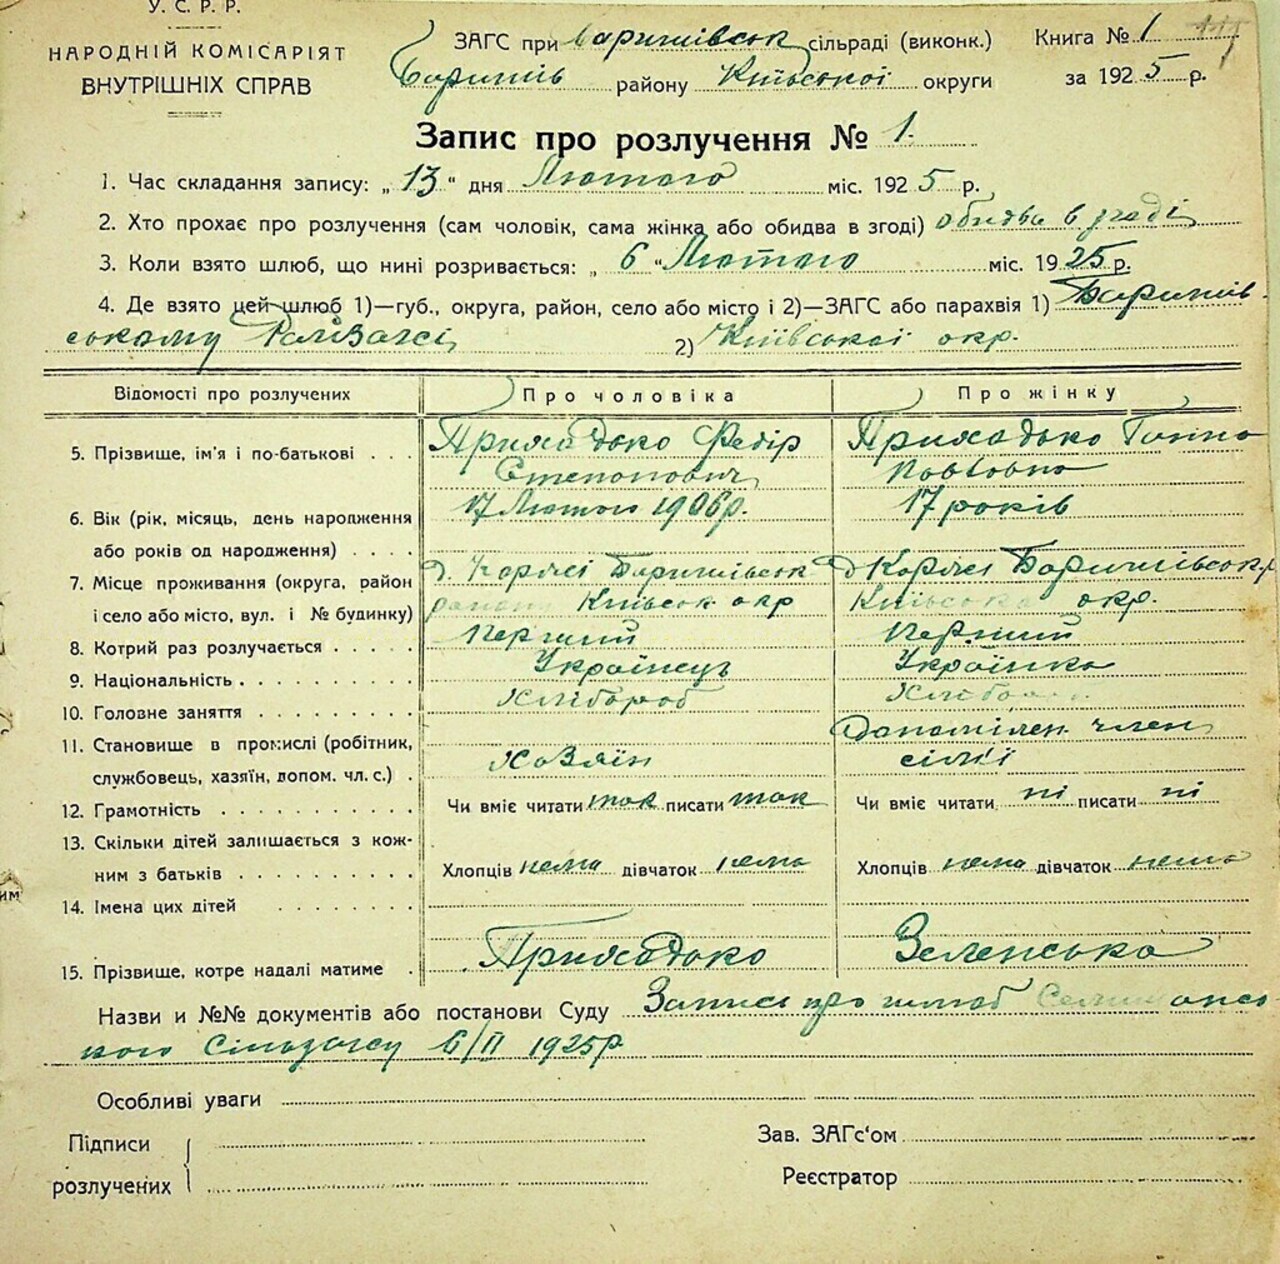 У. С. Р. Р.
НАРОДНІЙ КОМІСАРІЯТ
ВНУТРІШНІХ СПРАВ
ЗАГС при Баришівськ сільраді (виконк.) Книга № 1
Баришів району Київської округи за 1925 р.
Запис про розлучення № 1.
1. Час складання запису: „13“ дня Лютого міс. 1925 р.
2. Хто прохає про розлучення (сам чоловік, сама жінка або обидва в згоді) обидва в згоді
3. Коли взято шлюб, що нині розривається: „6“ Лютого міс. 1925 р.
4. Де взято цей шлюб 1)—губ., округа, район, село або місто і 2)—ЗАГС або парахвія 1) Баришів-
ському Райзагсі 2) Київської окр.
Відомості про розлучених Про чоловіка Про жінку
5. Прізвище, ім'я і по-батькові . . . Приходько Федір Приходько Ганна
Степанович Павловна
6. Вік (рік, місяць, день народження 17 Лютого 1906 р. 17 років
або років од народження) . . . .
7. Місце проживання (округа, район д. Коржі Баришівськ д Коржі Баришівськ. р
і село або місто, вул. і № будинку) району Київськ окр Київська окр.
8. Котрий раз розлучається . . . . . Перший Перший
9. Національність . . . . . . . . . Українець Українка
10. Головне заняття . . . . . . . . Хлібороб
11. Становище в промислі (робітник, член
службовець, хазяїн, допом. чл. с.) . Хозяїн сім'ї
12. Грамотність . . . . . . . . . . Чи вміє читати так писати так Чи вміє читати ні писати ні
13. Скільки дітей залишається з кож-
ним з батьків . . . . . . . . . . Хлопців нема дівчаток нема Хлопців нема дівчаток нема
14. Імена цих дітей . . . . . . . .
15. Прізвище, котре надалі матиме . Приходько Зеленська
Назви и №№ документів або постанови Суду Запис про шлюб
кого Сільзагсу 6/II 1925 р
Особливі уваги
Підписи Зав. ЗАГс'ом
розлучених Реєстратор